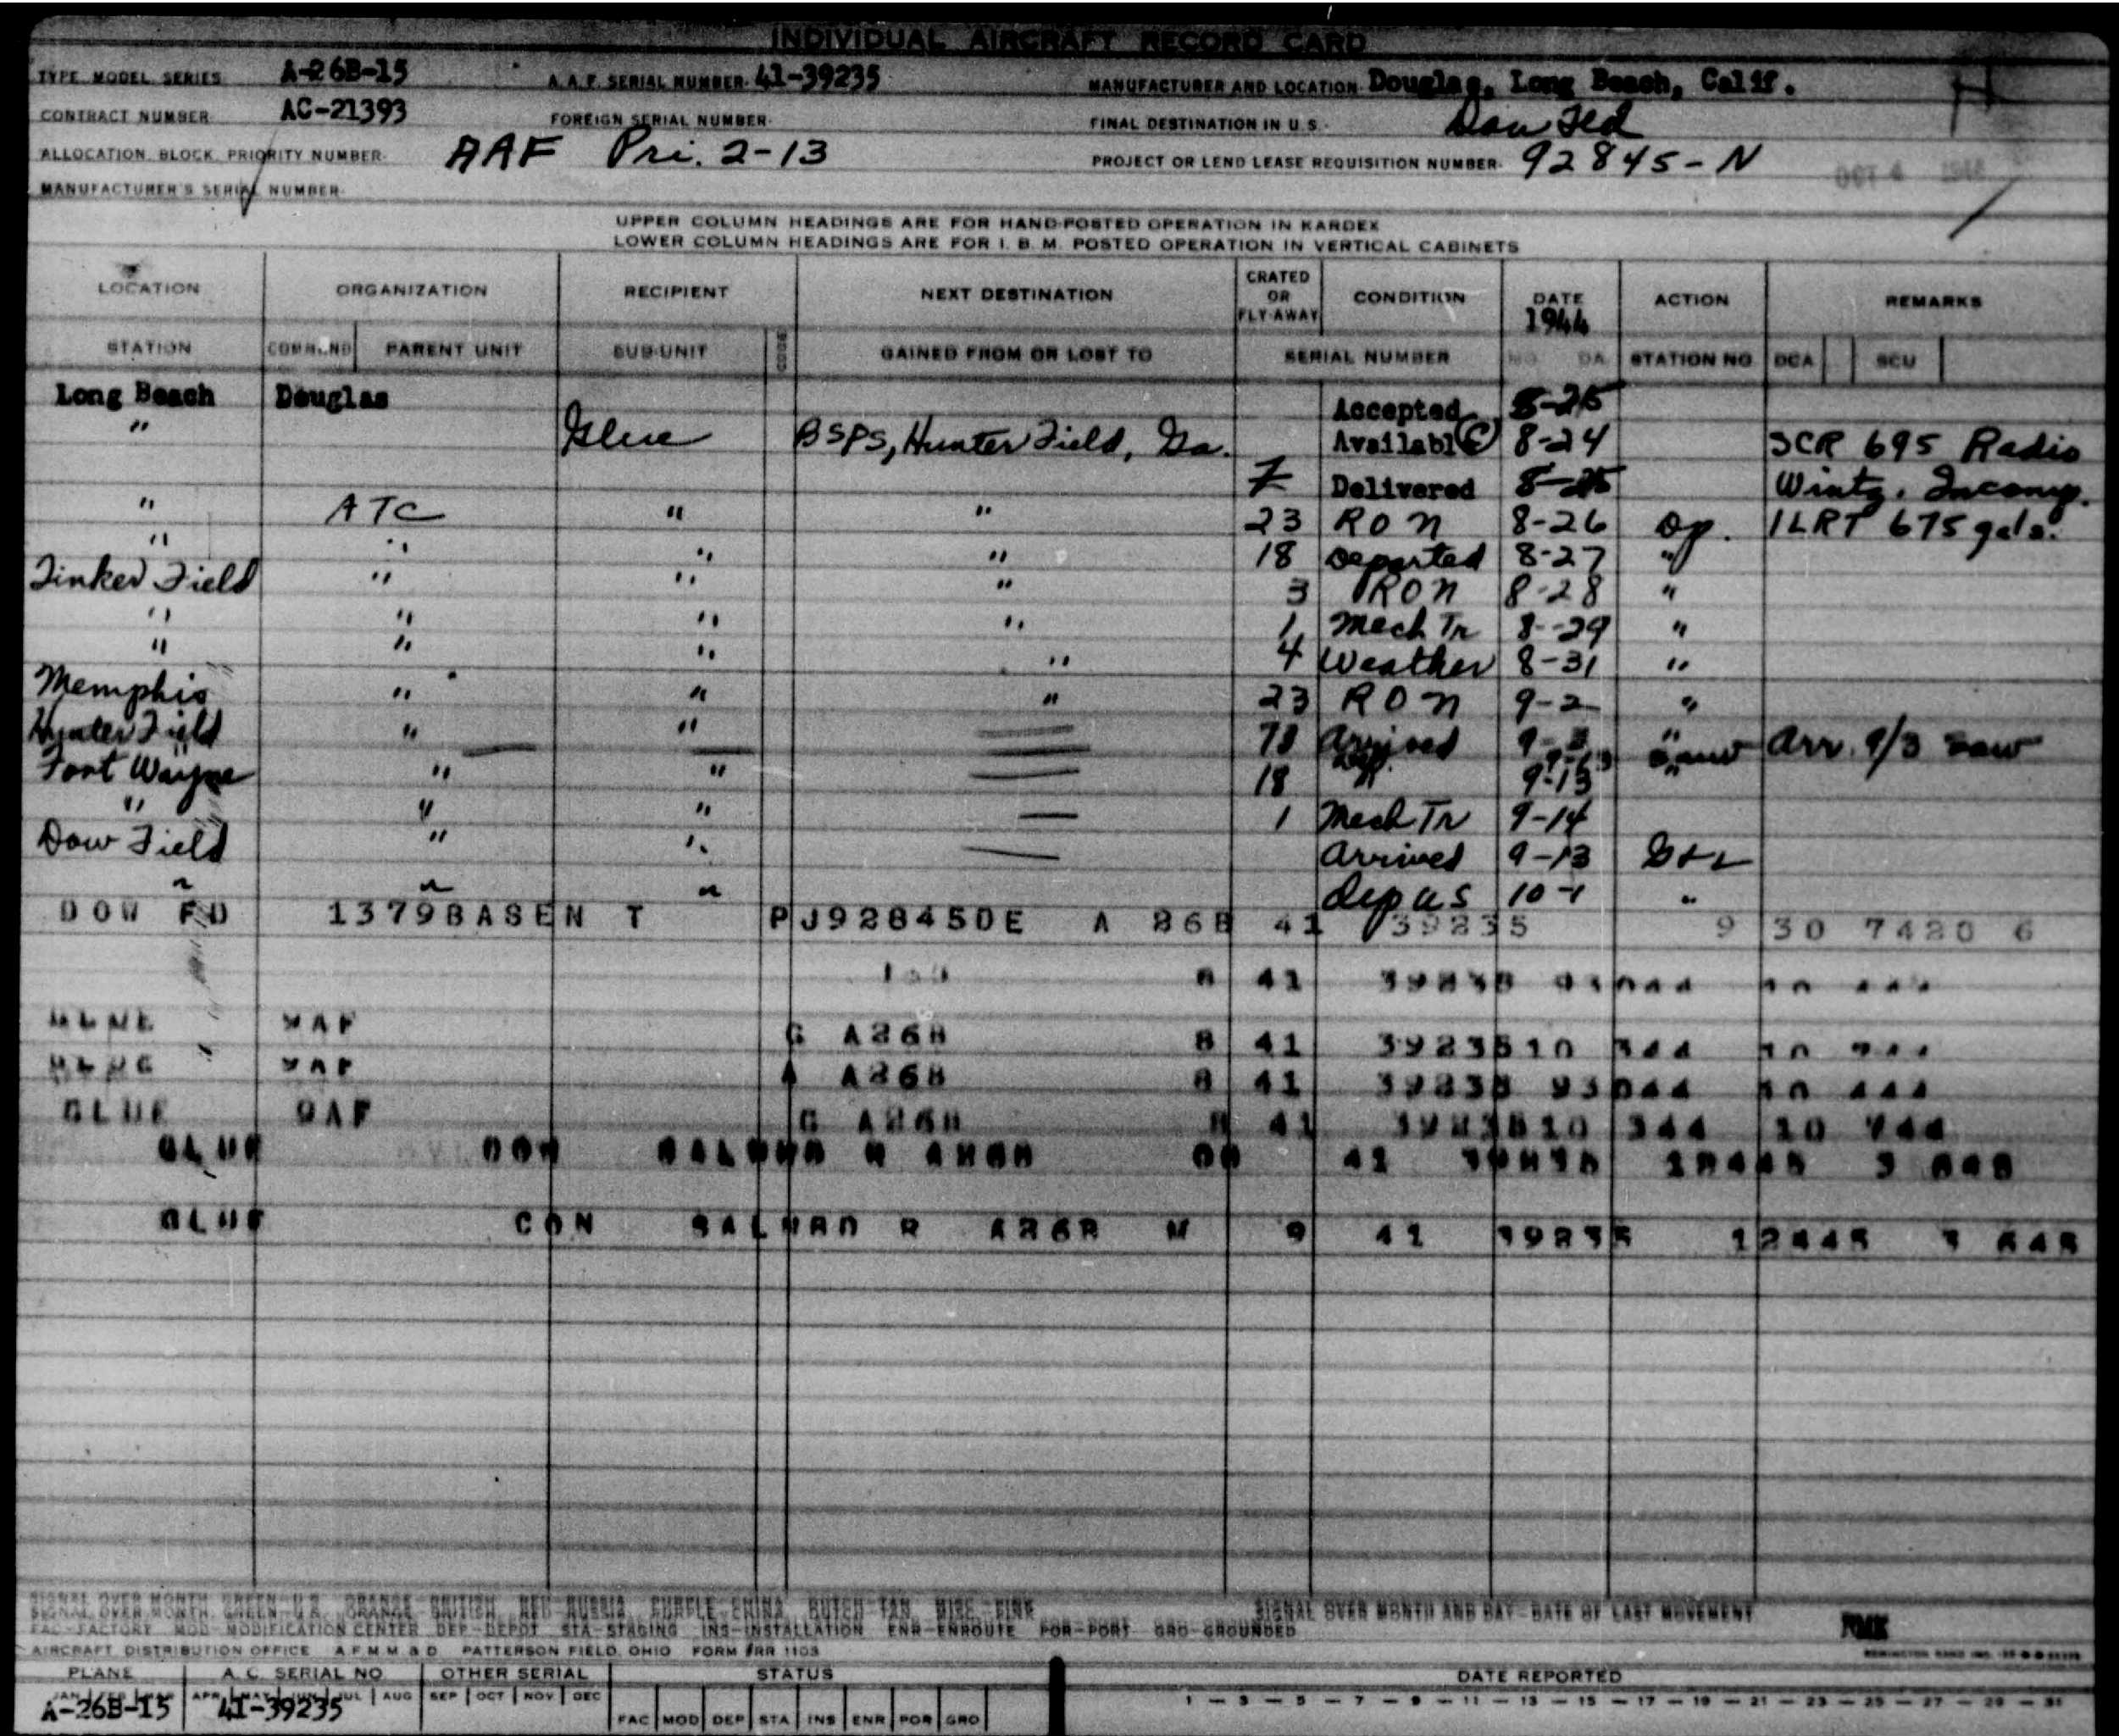 INDIVIDUAL AIRCRAFT RECORD CARD
TYPE MODEL SERIES A-26B-15 A.A.F. SERIAL NUMBER 41-39235 MANUFACTURER AND LOCATION Douglas, Long Beach, Calif.
CONTRACT NUMBER AC-21393 FOREIGN SERIAL NUMBER FINAL DESTINATION IN U.S.
ALLOCATION BLOCK PRIORITY NUMBER AAF Pri. 2-13 PROJECT OR LEND LEASE REQUISITION NUMBER 92845-N
OCT 4
MANUFACTURER'S SERIAL NUMBER
UPPER COLUMN HEADINGS ARE FOR HAND-POSTED OPERATION IN KARDEX
LOWER COLUMN HEADINGS ARE FOR I.B.M. POSTED OPERATION IN VERTICAL CABINETS
LOCATION ORGANIZATION RECIPIENT NEXT DESTINATION CRATED OR FLY-AWAY CONDITION DATE 1944 ACTION REMARKS
STATION COMMAND PARENT UNIT SUB-UNIT GAINED FROM OR LOST TO SERIAL NUMBER MO. DA. STATION NO OCA SCU
Long Beach Douglas Accepted 8-25
" Glue BSPS, Hunter Field, Ga. Availabl C 8-24 SCR 695 Radio
Delivered 8-25 Wintz. Incomp.
" ATC " " 23 RON 8-26 Op. 1LRT 675 gals.
" " " " 18 Departed 8-27 "
Tinker Field " " " 3 RON 8-28 "
" " " " 1 Mech Tr 8-29 "
" " " " 4 Weather 8-31 "
Memphis " " " 23 RON 9-2 "
Hunter Field " " Arrived Arr. 9/3
Fort Wayne " " 18 9-13
" " " 1 Mech Tr 9-14
Dow Field " " Arrived 9-13
" " " dep us 10-1 "
DOW FD 1379BASEN T PJ92845DE A 26B 41 39235 9 30 7420 6
8 41
GLUE 9AF G A26B 8 41 3923510 344
GLUE 9AF A A26B 8 41 39235 93044 10 444
GLUE 9AF G A26B 8 41 3923510 344 10 744
GLUE CON 41 39235 12445 3 645
GLUE CON SAL R A26B M 9 41 39235 12445 3 645
SIGNAL OVER MONTH GREEN-U.S. ORANGE-BRITISH RED-RUSSIA PURPLE-CHINA DUTCH-TAN MISC-PINK SIGNAL OVER MONTH AND DAY-DATE OF LAST MOVEMENT
FAC-FACTORY MOD-MODIFICATION CENTER DEP-DEPOT STA-STAGING INS-INSTALLATION ENR-ENROUTE POR-PORT GRO-GROUNDED
AIRCRAFT DISTRIBUTION OFFICE A F M M & D PATTERSON FIELD, OHIO FORM #RR 1103
PLANE A.C. SERIAL NO OTHER SERIAL STATUS DATE REPORTED
JAN FEB MAR APR MAY JUN JUL AUG SEP OCT NOV DEC 1-3-5-7-9-11-13-15-17-19-21-23-25-27-29-31
A-26B-15 41-39235 FAC MOD DEP STA INS ENR POR GRO